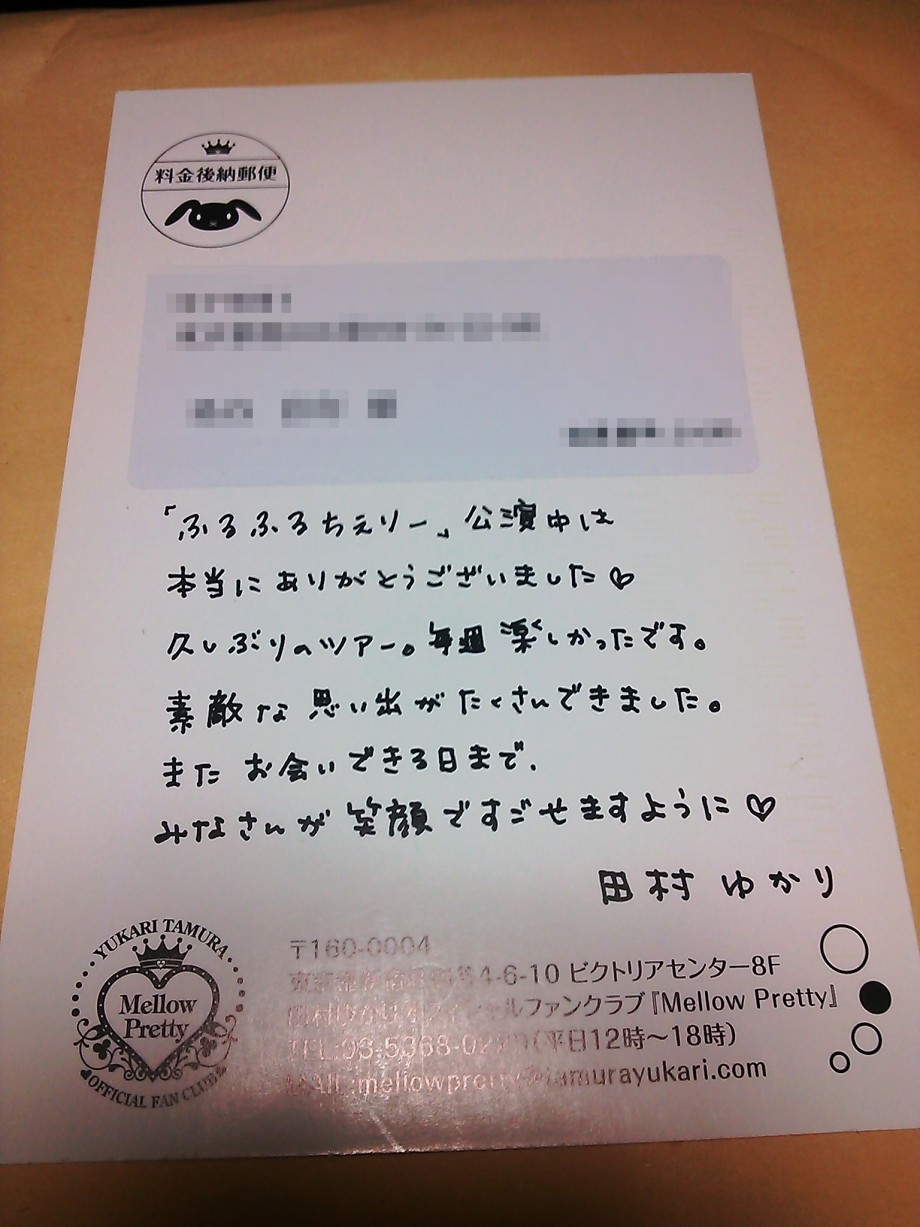 料金後納郵便
「ふるふるちぇりー」公演中は
本当にありがとうございました♡
久しぶりのツアー。毎週楽しかったです。
素敵な思い出がたくさんできました。
またお会いできる日まで、
みなさんが笑顔ですごせますように♡
田村ゆかり
YUKARI TAMURA
Mellow
Pretty
OFFICIAL FAN CLUB
〒160-0004
4-6-10 ビクトリアセンター8F
田村ゆかりオフィシャルファンクラブ『Mellow Pretty』
TEL:03-5368- (平日12時〜18時)
MAIL:mellowpretty@tamurayukari.com